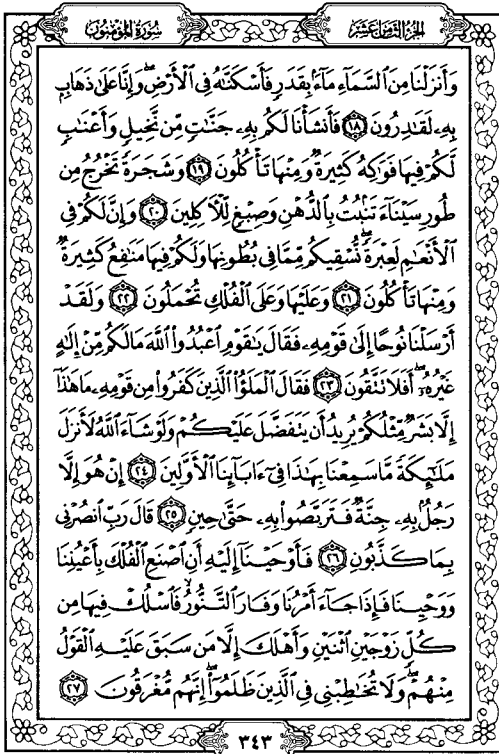 سُورَةُ المُؤْمِنُونَ الجُزْءُ الثَّامِنُ عَشَرَ
وَأَنزَلْنَا مِنَ ٱلسَّمَآءِ مَآءًۢ بِقَدَرٍ فَأَسْكَنَّٰهُ فِى ٱلْأَرْضِ ۖ وَإِنَّا عَلَىٰ ذَهَابٍۭ
بِهِۦ لَقَٰدِرُونَ ١٨ فَأَنشَأْنَا لَكُم بِهِۦ جَنَّٰتٍ مِّن نَّخِيلٍ وَأَعْنَٰبٍ
لَّكُمْ فِيهَا فَوَٰكِهُ كَثِيرَةٌ وَمِنْهَا تَأْكُلُونَ ١٩ وَشَجَرَةً تَخْرُجُ مِن
طُورِ سَيْنَآءَ تَنۢبُتُ بِٱلدُّهْنِ وَصِبْغٍ لِّلْءَاكِلِينَ ٢٠ وَإِنَّ لَكُمْ فِى
ٱلْأَنْعَٰمِ لَعِبْرَةً ۖ نُّسْقِيكُم مِّمَّا فِى بُطُونِهَا وَلَكُمْ فِيهَا مَنَٰفِعُ كَثِيرَةٌ
وَمِنْهَا تَأْكُلُونَ ٢١ وَعَلَيْهَا وَعَلَى ٱلْفُلْكِ تُحْمَلُونَ ٢٢ وَلَقَدْ
أَرْسَلْنَا نُوحًا إِلَىٰ قَوْمِهِۦ فَقَالَ يَٰقَوْمِ ٱعْبُدُوا۟ ٱللَّهَ مَا لَكُم مِّنْ إِلَٰهٍ
غَيْرُهُۥٓ ۖ أَفَلَا تَتَّقُونَ ٢٣ فَقَالَ ٱلْمَلَؤُا۟ ٱلَّذِينَ كَفَرُوا۟ مِن قَوْمِهِۦ مَا هَٰذَآ
إِلَّا بَشَرٌ مِّثْلُكُمْ يُرِيدُ أَن يَتَفَضَّلَ عَلَيْكُمْ وَلَوْ شَآءَ ٱللَّهُ لَأَنزَلَ
مَلَٰٓئِكَةً مَّا سَمِعْنَا بِهَٰذَا فِىٓ ءَابَآئِنَا ٱلْأَوَّلِينَ ٢٤ إِنْ هُوَ إِلَّا
رَجُلٌۢ بِهِۦ جِنَّةٌ فَتَرَبَّصُوا۟ بِهِۦ حَتَّىٰ حِينٍ ٢٥ قَالَ رَبِّ ٱنصُرْنِى
بِمَا كَذَّبُونِ ٢٦ فَأَوْحَيْنَآ إِلَيْهِ أَنِ ٱصْنَعِ ٱلْفُلْكَ بِأَعْيُنِنَا
وَوَحْيِنَا فَإِذَا جَآءَ أَمْرُنَا وَفَارَ ٱلتَّنُّورُ ۙ فَٱسْلُكْ فِيهَا مِن
كُلٍّ زَوْجَيْنِ ٱثْنَيْنِ وَأَهْلَكَ إِلَّا مَن سَبَقَ عَلَيْهِ ٱلْقَوْلُ
مِنْهُمْ ۖ وَلَا تُخَٰطِبْنِى فِى ٱلَّذِينَ ظَلَمُوٓا۟ ۖ إِنَّهُم مُّغْرَقُونَ ٢٧
٣٤٣